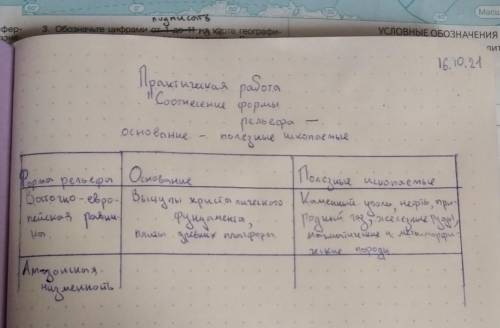 подписать
фер-
3. Обозначьте цифрами от 1 до 11 на карте географи-
УСЛОВНЫЕ ОБОЗНАЧЕНИЯ
16.10.21
Практическая работа
"Соотнесение формы
рельефа —
основание - полезные ископаемые
Форма рельефа
Основание
Полезные ископаемые
Восточно-евро-
пейская равни-
на.
Выступы кристалического
фундамента,
плиты древних платформ
Каменный уголь, нефть, при-
родный газ, железные руды,
магматические и метаморфи-
ческие породы
Амазонская
низменность